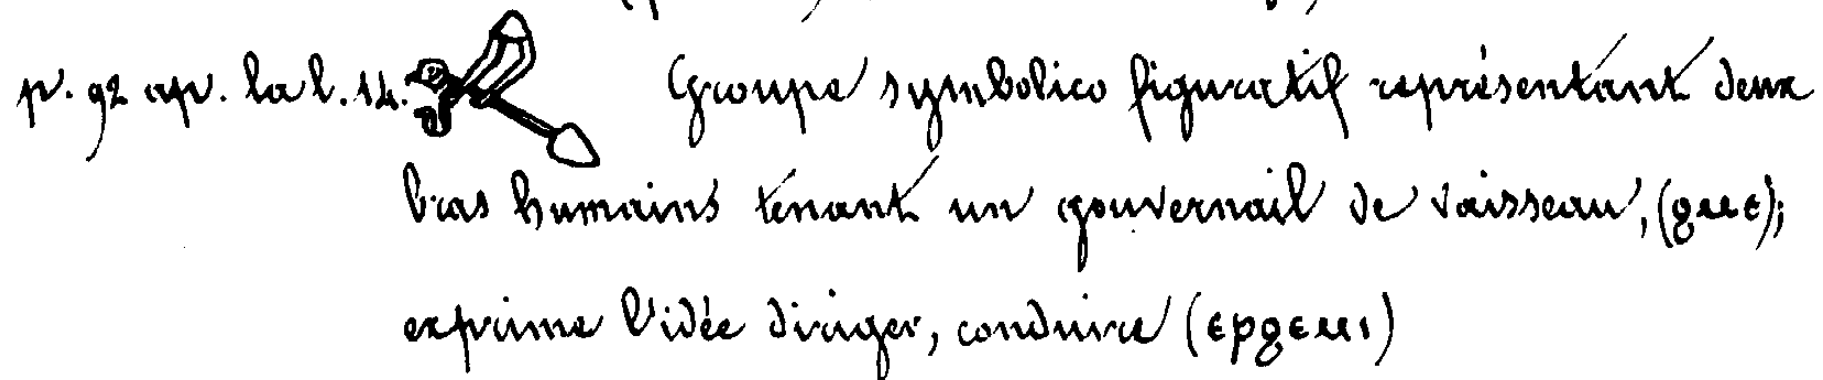 p. 92 ap. la l. 14. Groupe symbolico figuratif représentant deux
bras humains tenant un gouvernail de vaisseau, (ϩⲙⲉ);
exprime l'idée diriger, conduire (ⲉⲣϩⲉⲙⲓ)